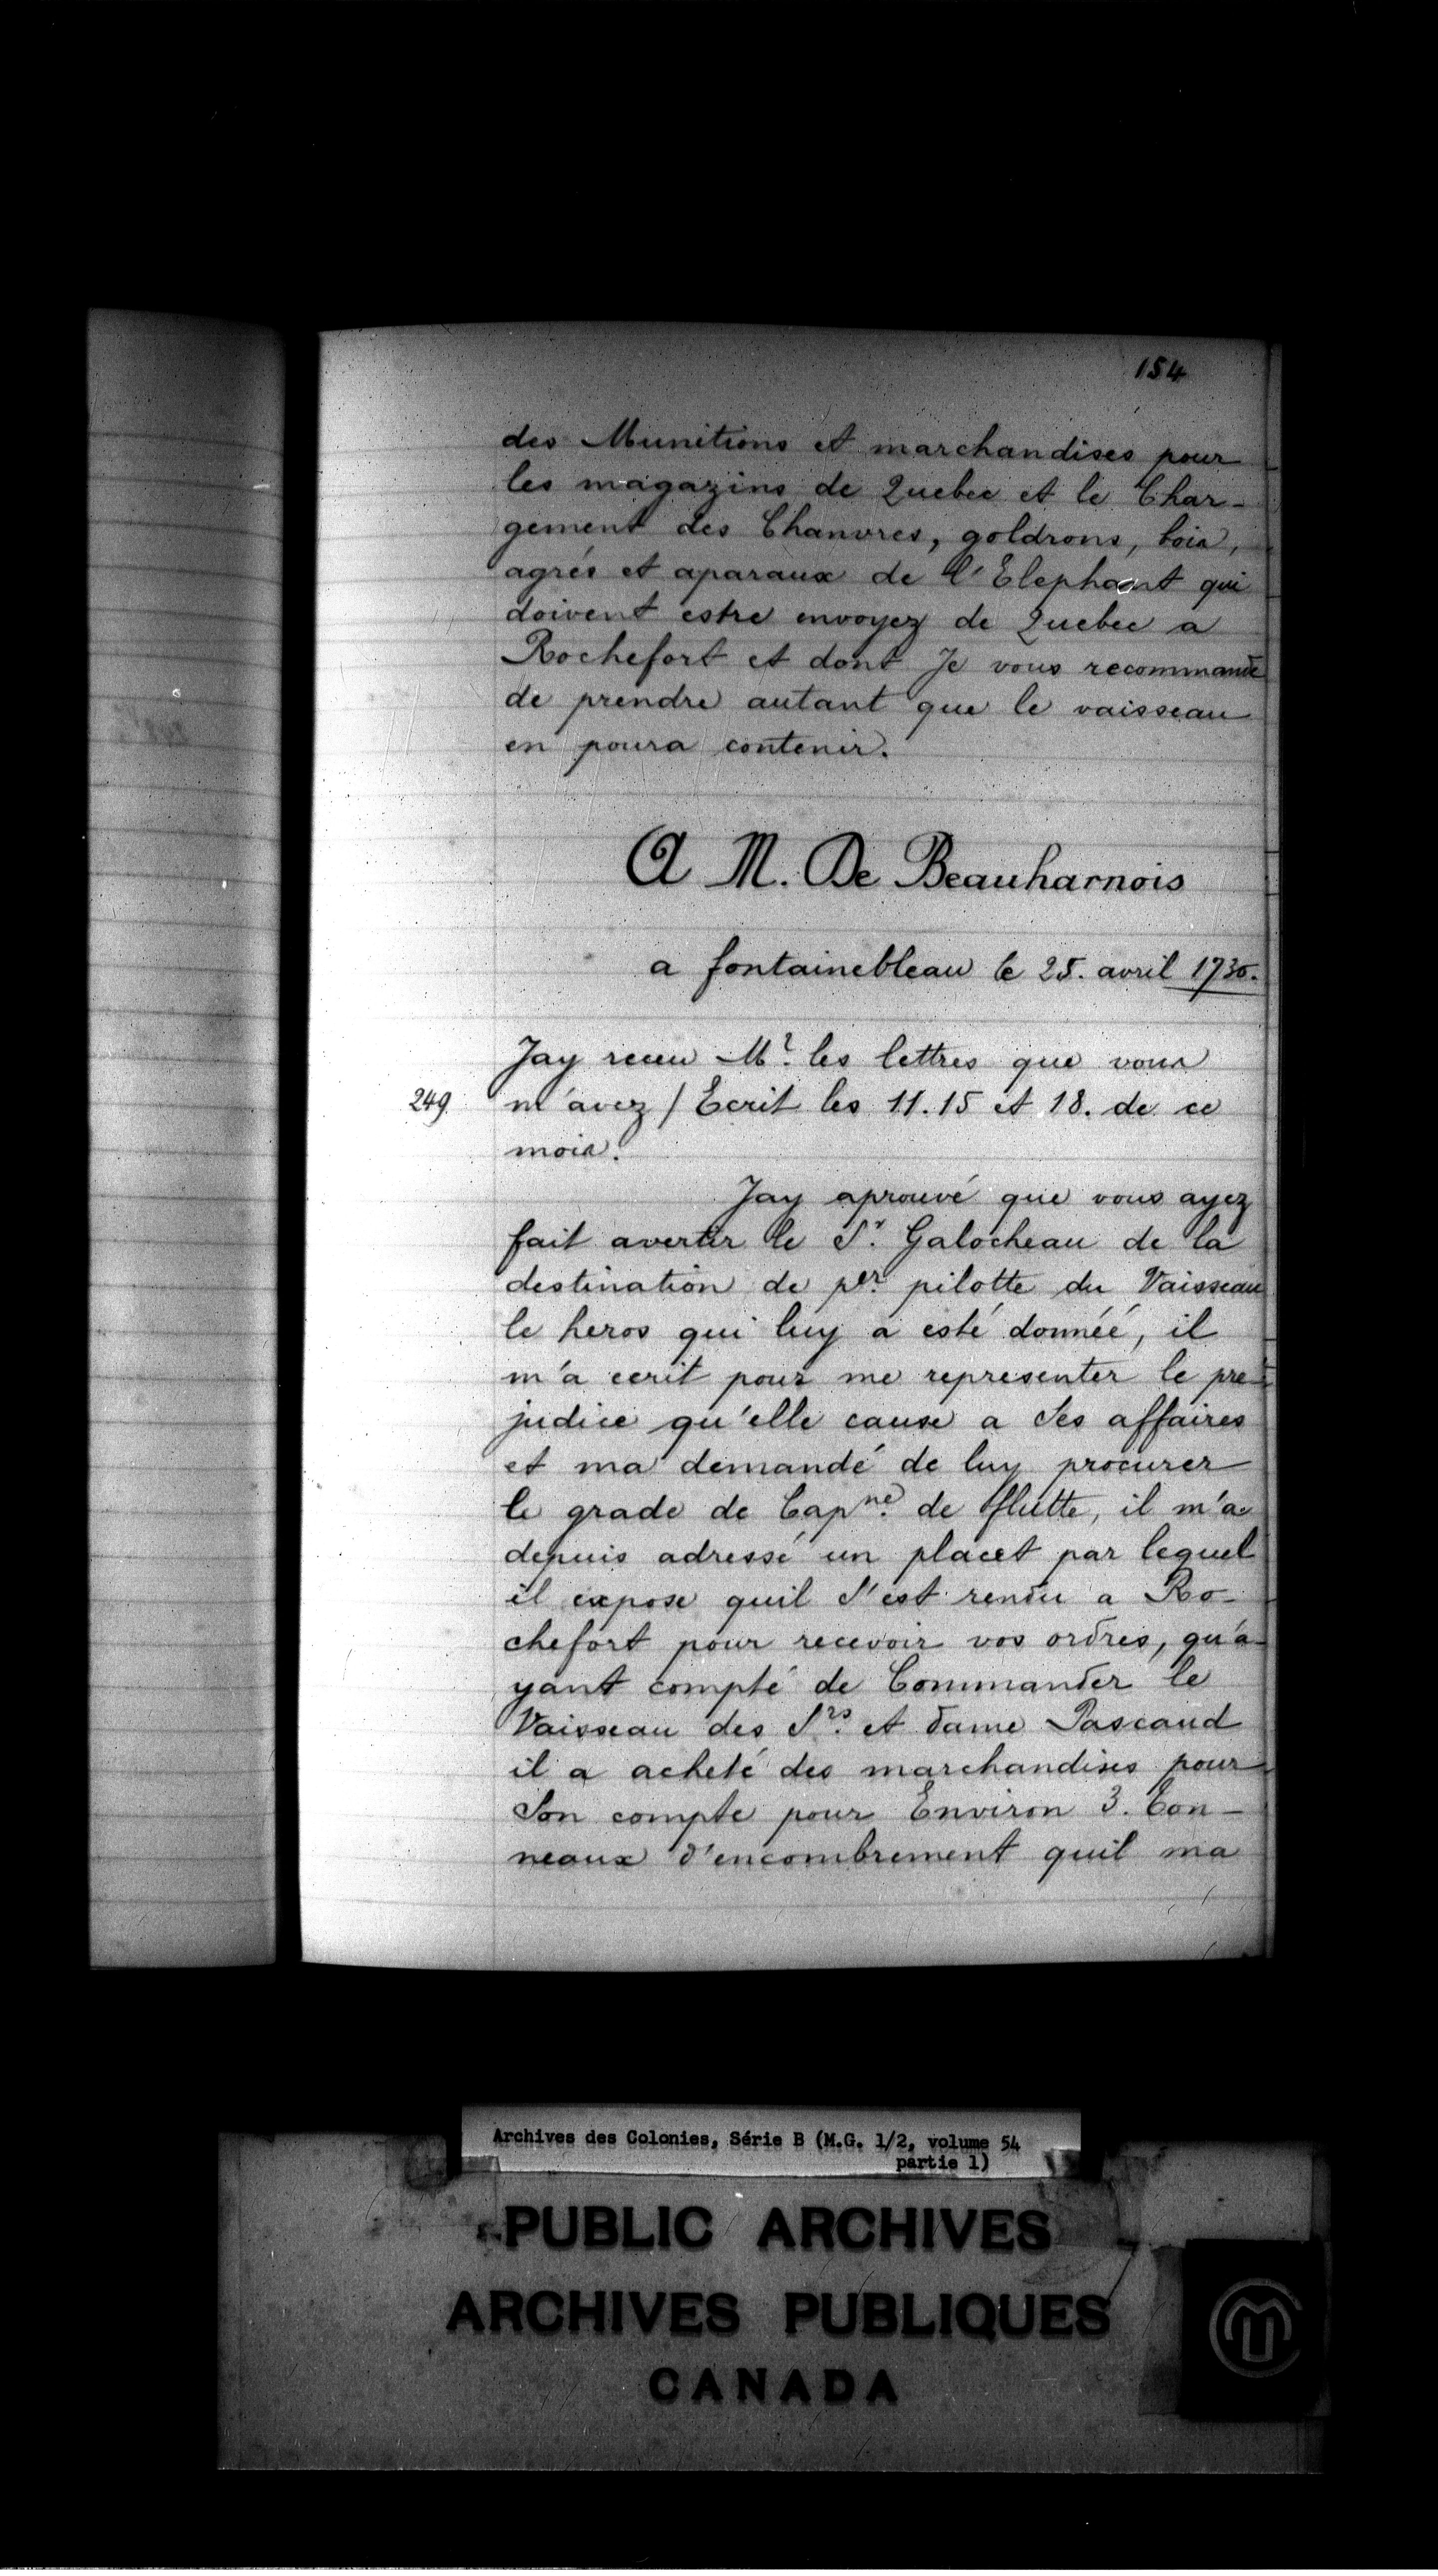 154
des Munitions et marchandises pour
les magazins de Quebec et le Char-
gement des Chanvres, goldrons, bois,
agrés et aparaux de l'Elephant qui
doivent estre envoyez de Quebec a
Rochefort et dont Je vous recommande
de prendre autant que le vaisseau
en poura contenir.
A M. De Beauharnois
a fontainebleau le 25. avril 1730.
Jay receu Mr. les lettres que vous
249 m'avez / Ecrit les 11. 15 et 18. de ce
mois.
Jay aprouvé que vous ayez
fait avertir le Sr. Galocheau de la
destination de per. pilotte du Vaisseau
le heros qui luy a esté donnéé, il
m'a ecrit pour me representer le pre-
judice qu'elle cause a Ses affaires
et ma demandé de luy procurer
le grade de Capne. de flutte, il m'a
depuis adressé un placet par lequel
il expose quil S'est rendu a Ro-
chefort pour recevoir vos ordres, qu'a-
yant compté de Commander le
Vaisseau des Srs. et dame Pascaud
il a acheté des marchandises pour
Son compte pour Environ 3. ton-
neaux d'encombrement quil ma
Archives des Colonies, Série B (M.G. 1/2, volume 54
partie 1)
PUBLIC ARCHIVES
ARCHIVES PUBLIQUES
CANADA